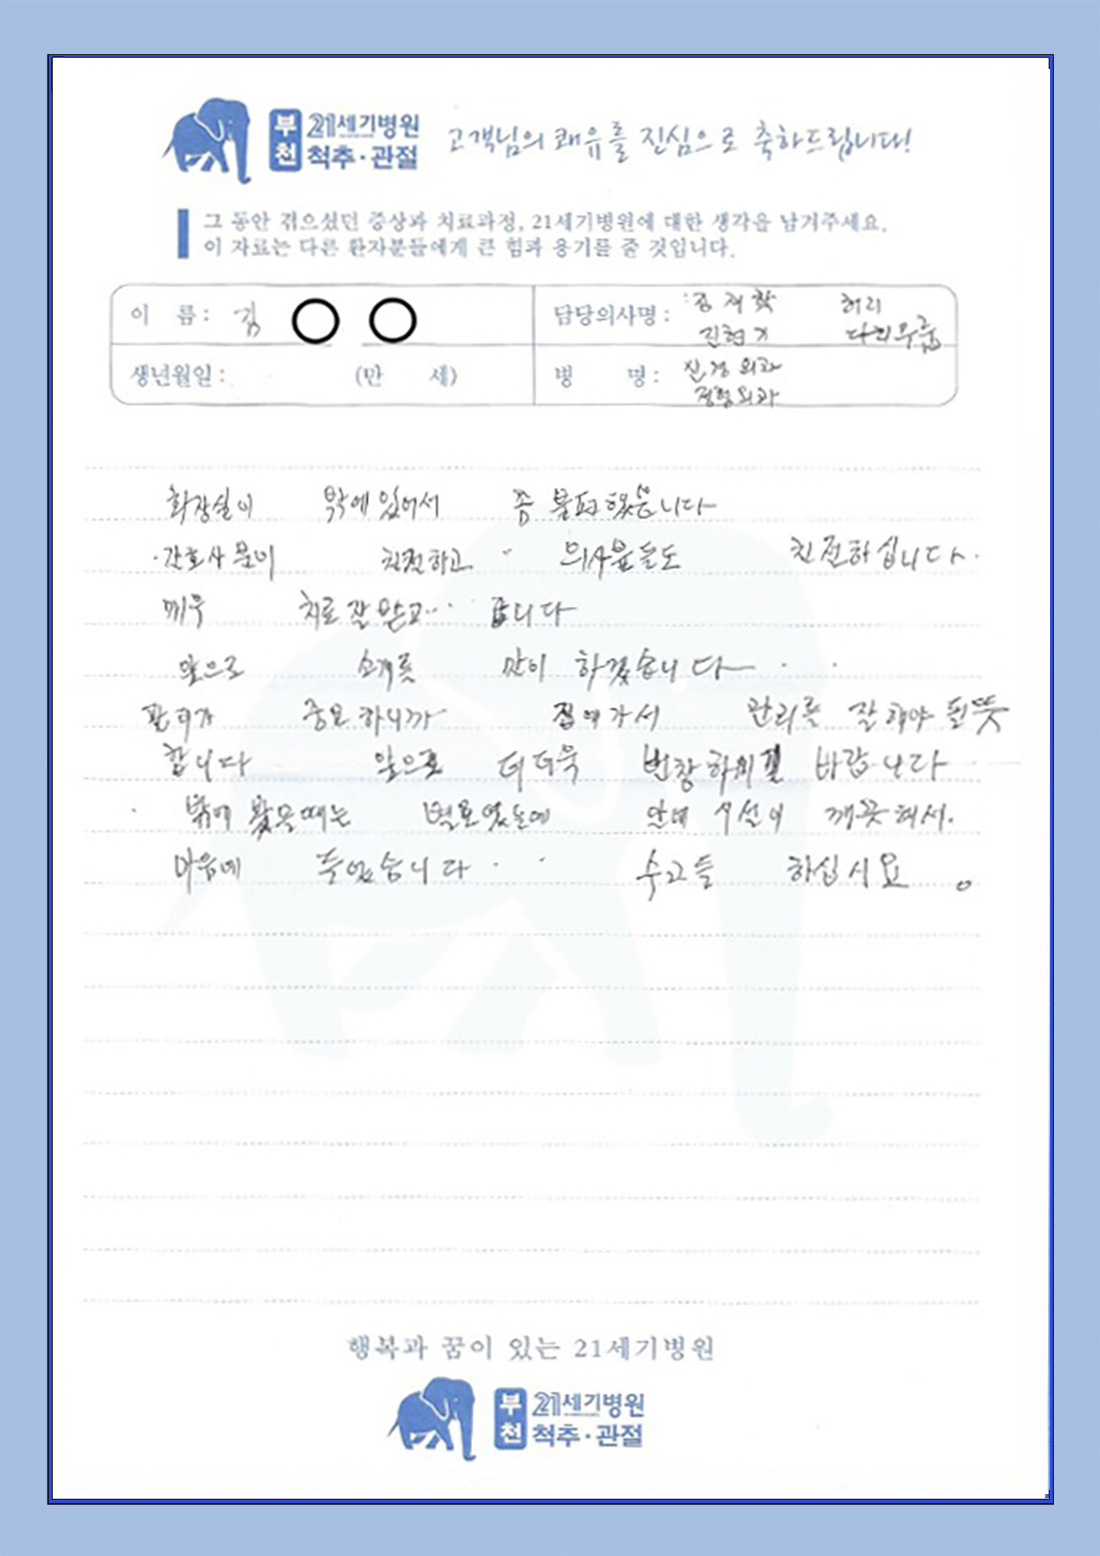 부천 21세기병원 척추·관절
고객님의 쾌유를 진심으로 축하드립니다!
그 동안 겪으셨던 증상과 치료과정, 21세기병원에 대한 생각을 남겨주세요.
이 자료는 다른 환자분들에게 큰 힘과 용기를 줄 것입니다.
이 름 : 김 ○ ○
담당의사명 : 김재학 허리
진형기 다리무릎
생년월일 : (만 세)
병 명 : 신경외과
정형외과
화장실이 밖에 있어서 좀 불편했습니다
간호사분이 친절하고 의사분들도 친절하십니다.
치료 잘 받고 갑니다
앞으로 소개를 많이 하겠습니다
관리가 중요하니까 집에가서 관리를 잘 해야 될뜻
합니다 앞으로 더더욱 번창하시길 바랍니다
밖에 봤을때는 별로였는데 안에 시설이 깨끗해서.
마음에 들었습니다 수고들 하십시요.
행복과 꿈이 있는 21세기병원
부천 21세기병원 척추·관절